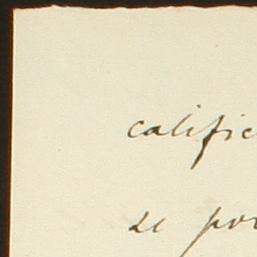 calific
se por